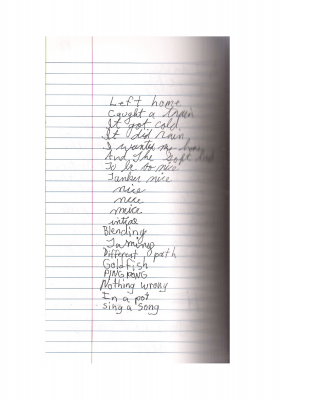 Left home
Caught a train
It got cold
It did rain
I wanted my
And The
To be so nice
nice
nice
nice
nice
Blending
Taming
Different path
Goldfish
PING PONG
Nothing wrong
In a pot
Sing a song